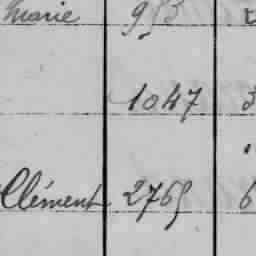 Marie 953
1047 3
Clément 2765 6